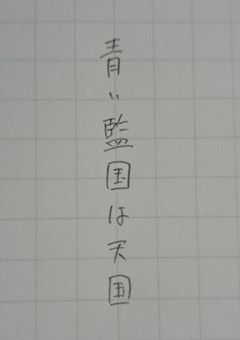 青い監国は天国